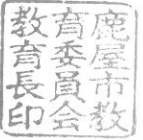 鹿屋市教
育委員会
教育長印